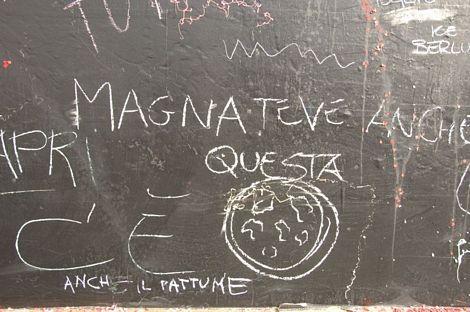 ICE
BERLU
MAGNATEVE ANCHE
QUESTA
APRI
C'È
ANCHE IL PATTUME